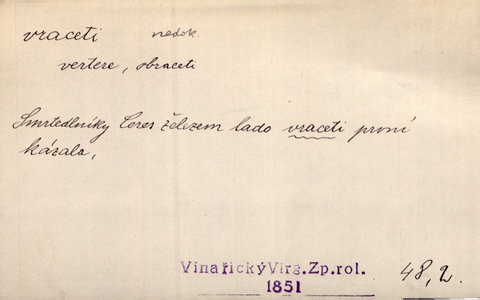 vraceti nedok
vertere, obraceti
Smrtedlníky Ceres železem lado vraceti první
kázala,
Vinařický Virg. Zp. rol. 48,2.
1851